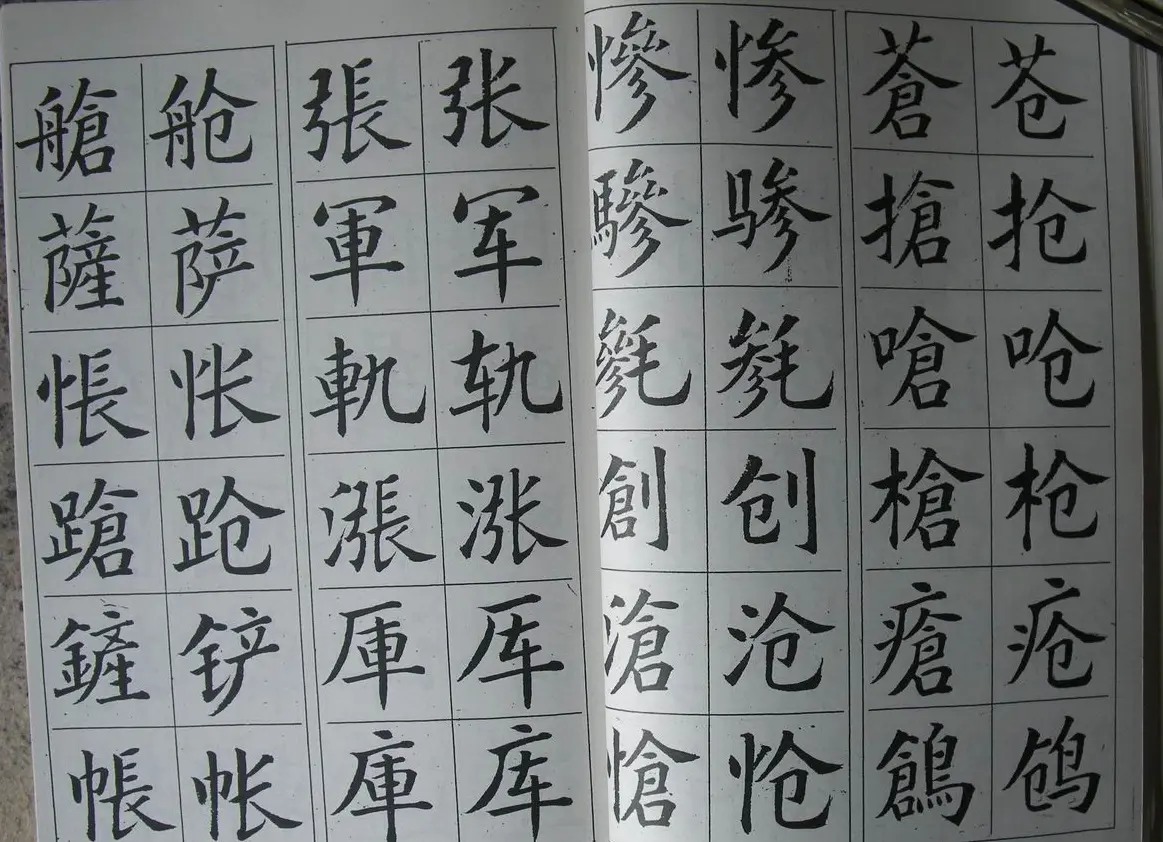 艙 舱 張 张
薩 萨 軍 军
悵 怅 軌 轨
蹌 跄 漲 涨
鏟 铲 厙 厍
帳 帐 庫 库
慘 惨 蒼 苍
驂 骖 搶 抢
毿 毵 嗆 呛
創 创 槍 枪
滄 沧 瘡 疮
愴 怆 鶬 鸧